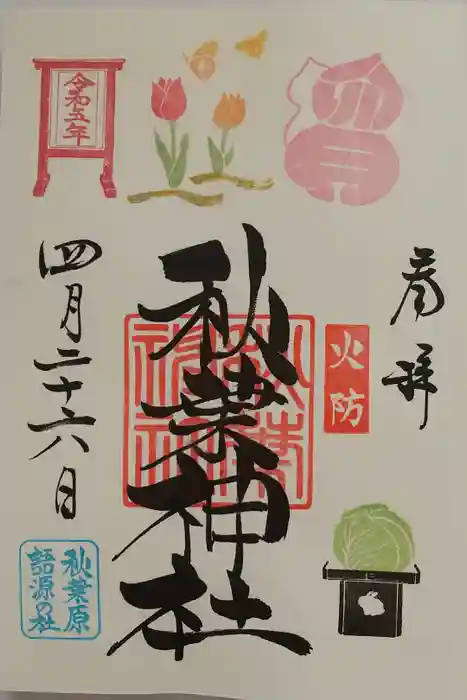 奉拝
火防
秋葉神社
令和五年
四月二十六日
秋葉原
語源の社